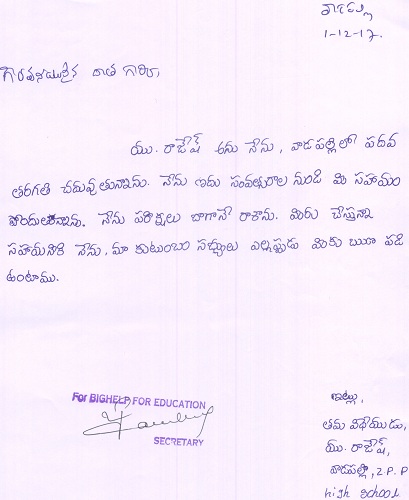 వాడపల్లి
1-12-17.
గౌరవనీయులైన దాత గారికి,
యు. రాజేష్ అను నేను, వాడపల్లిలో పదవ
తరగతి చదువుతున్నాను. నేను ఐదు సంవత్సరాల నుండి మీ సహాయం
పొందుతున్నాను. నేను పరీక్షలు బాగానే రాశాను. మీరు చేస్తున్న
సహాయానికి నేను, మా కుటుంబ సభ్యులు ఎల్లప్పుడు మీకు ఋణ పడి
ఉంటాము.
For BIGHELP FOR EDUCATION
SECRETARY
ఇట్లు,
తమ విధేయుడు,
యు. రాజేష్,
వాడపల్లి, Z.P.P
High School